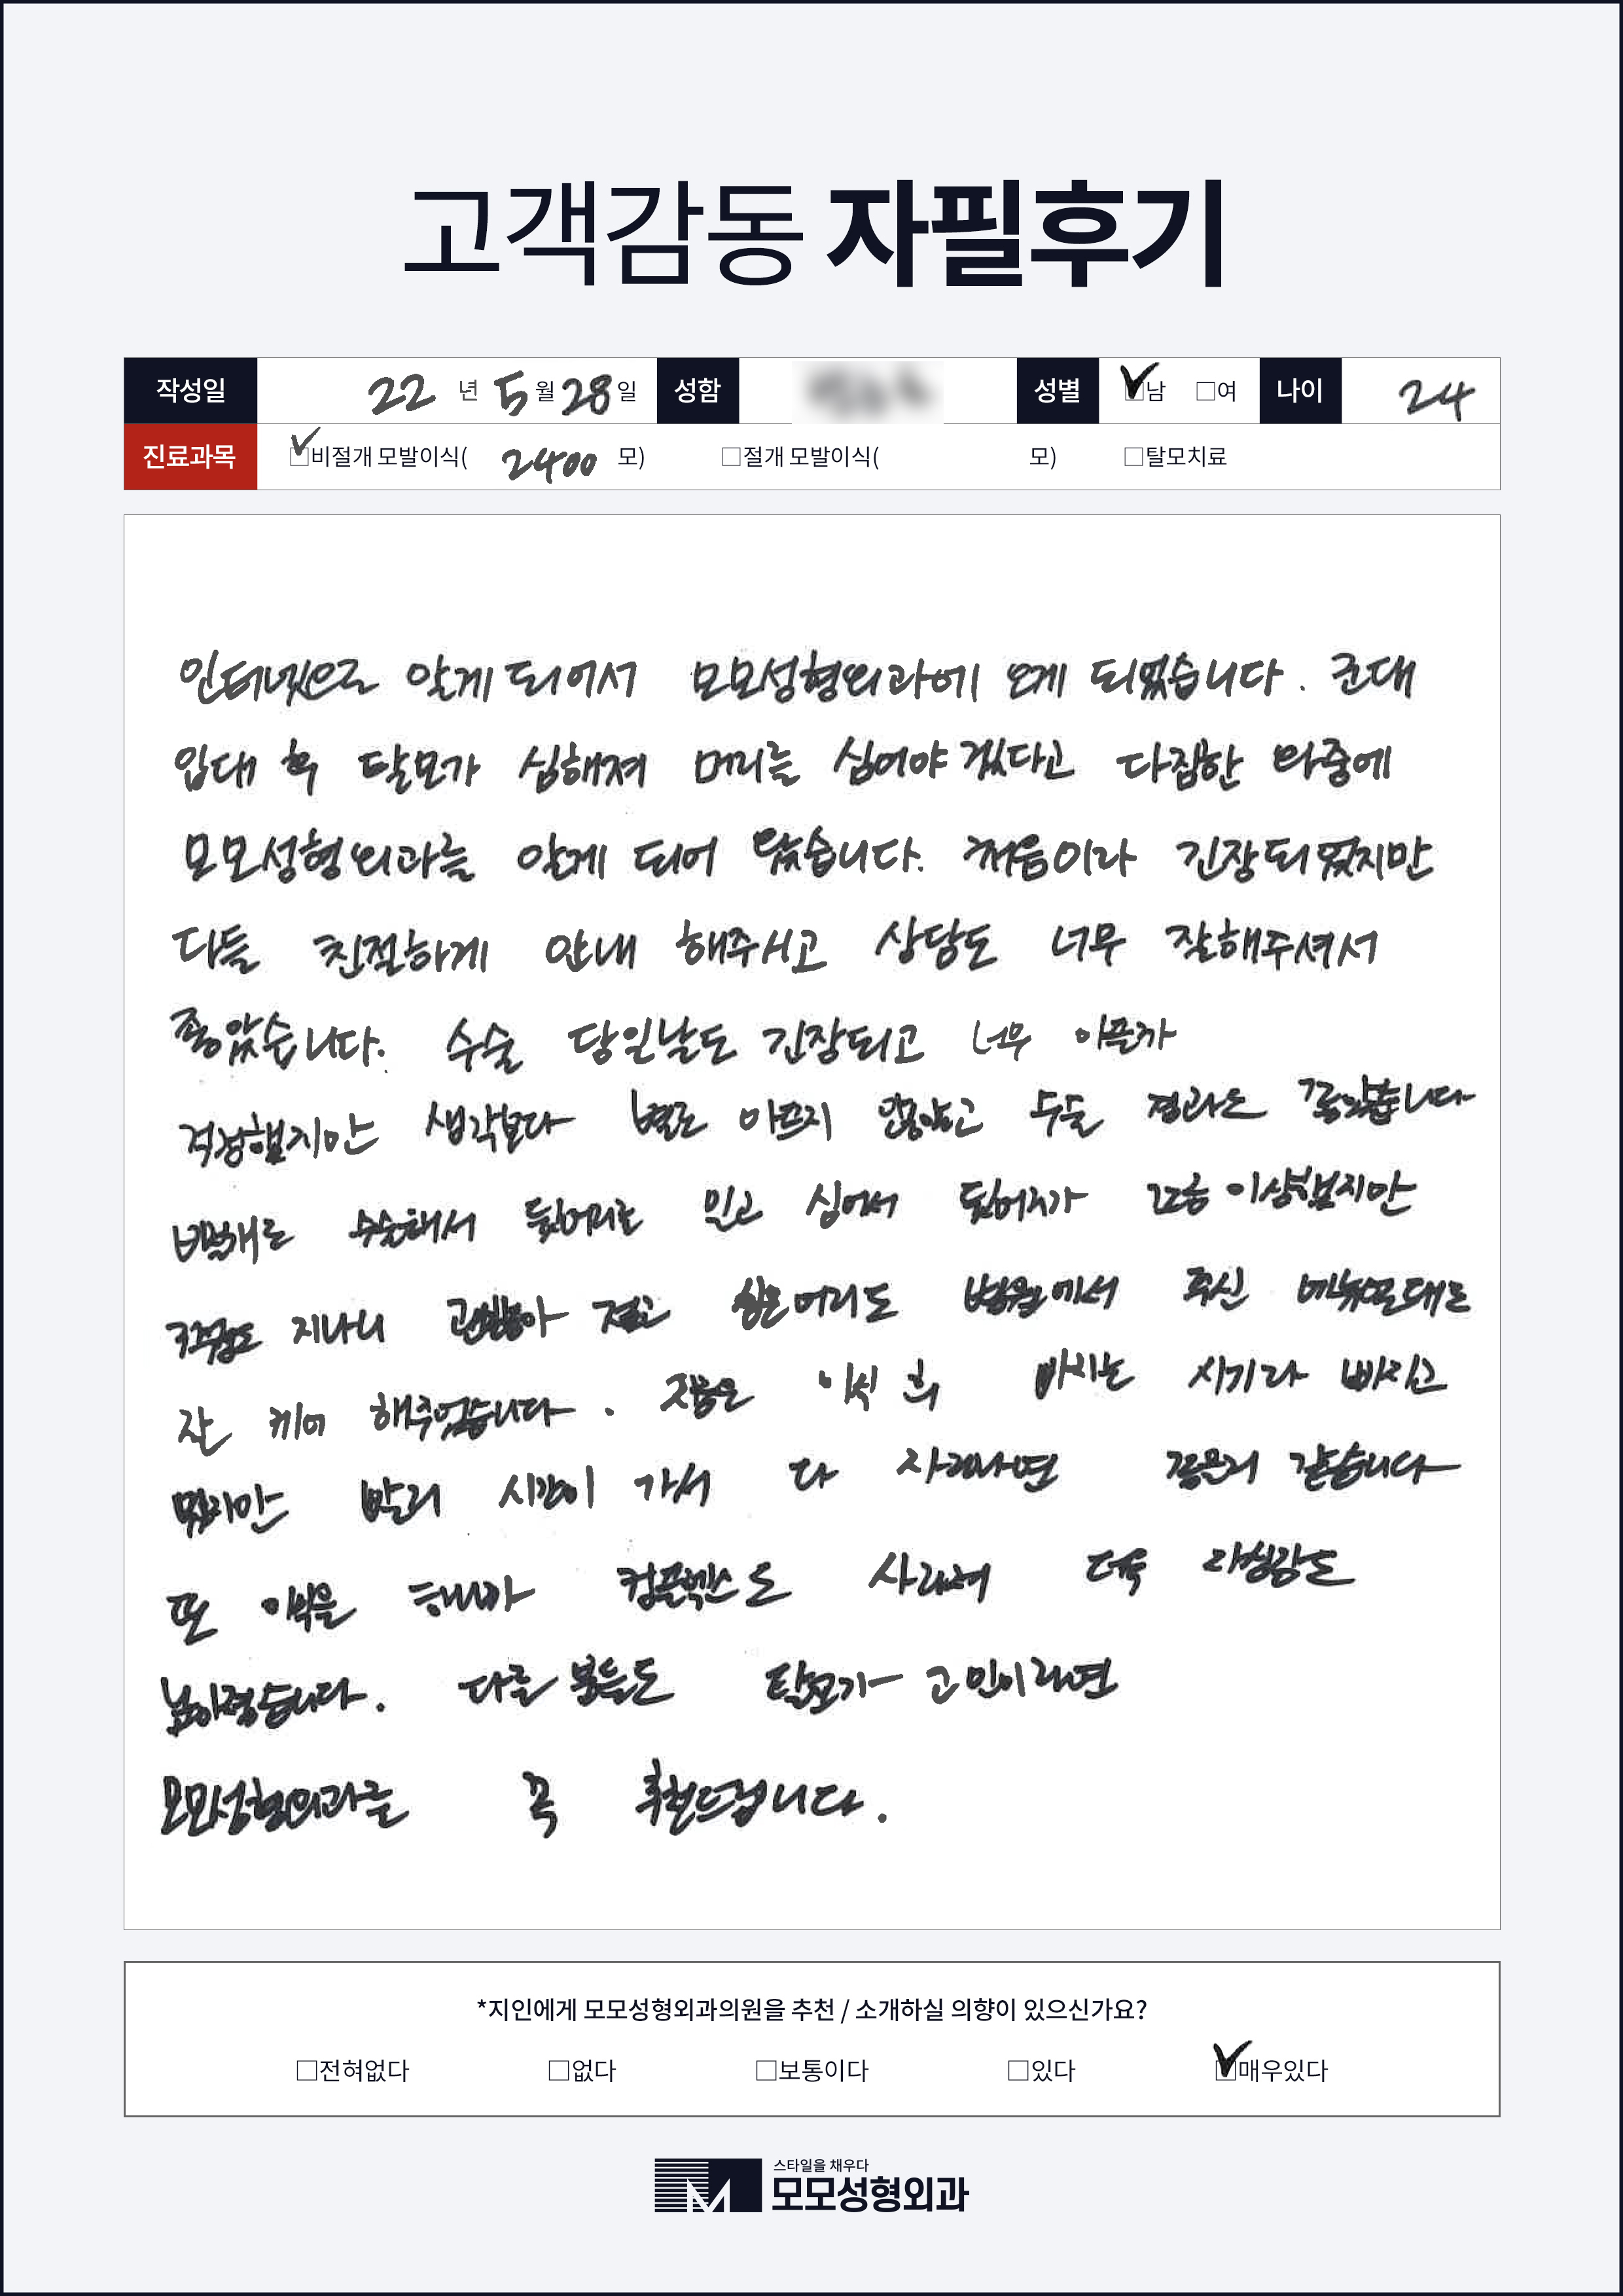 고객감동 자필후기
작성일 22 년 5 월 28 일 성함 성별 ☑남 □여 나이 24
진료과목 ☑비절개 모발이식( 2400 모) □절개 모발이식( 모) □탈모치료
인터넷으로 알게 되어서 모모성형외과에 오게 되었습니다. 군대
입대 후 탈모가 심해져 머리를 심어야겠다고 다짐한 와중에
모모성형외과를 알게 되어 왔습니다. 처음이라 긴장되었지만
다들 친절하게 안내 해주시고 상담도 너무 잘해주셔서
좋았습니다. 수술 당일날도 긴장되고 너무 아플까
걱정했지만 생각보다 별로 아프지 않았고 수술 결과도 좋았습니다
비절개로 수술해서 뒷머리를 밀고 심어서 뒷머리가 조금 이상했지만
지나니 심은머리도 병원에서 주신 메뉴얼대로
잘 케어 해주었습니다. 지금은 이식 후 빠지는 시기라 빠지고
있지만 빨리 시간이 가서 다 자라나면 좋을거 같습니다
또 이식을 하니까 컴플렉스도 사라져 더욱 자신감도
높아졌습니다. 다른 분들도 탈모가 고민이라면
모모성형외과를 꼭 추천드립니다.
*지인에게 모모성형외과의원을 추천 / 소개하실 의향이 있으신가요?
□전혀없다 □없다 □보통이다 □있다 ☑매우있다
스타일을 채우다
모모성형외과